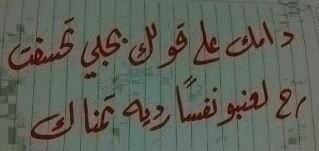 دامك على قولك بحلي تحسفت
رح لعنبو نفسًا رديه تمناك